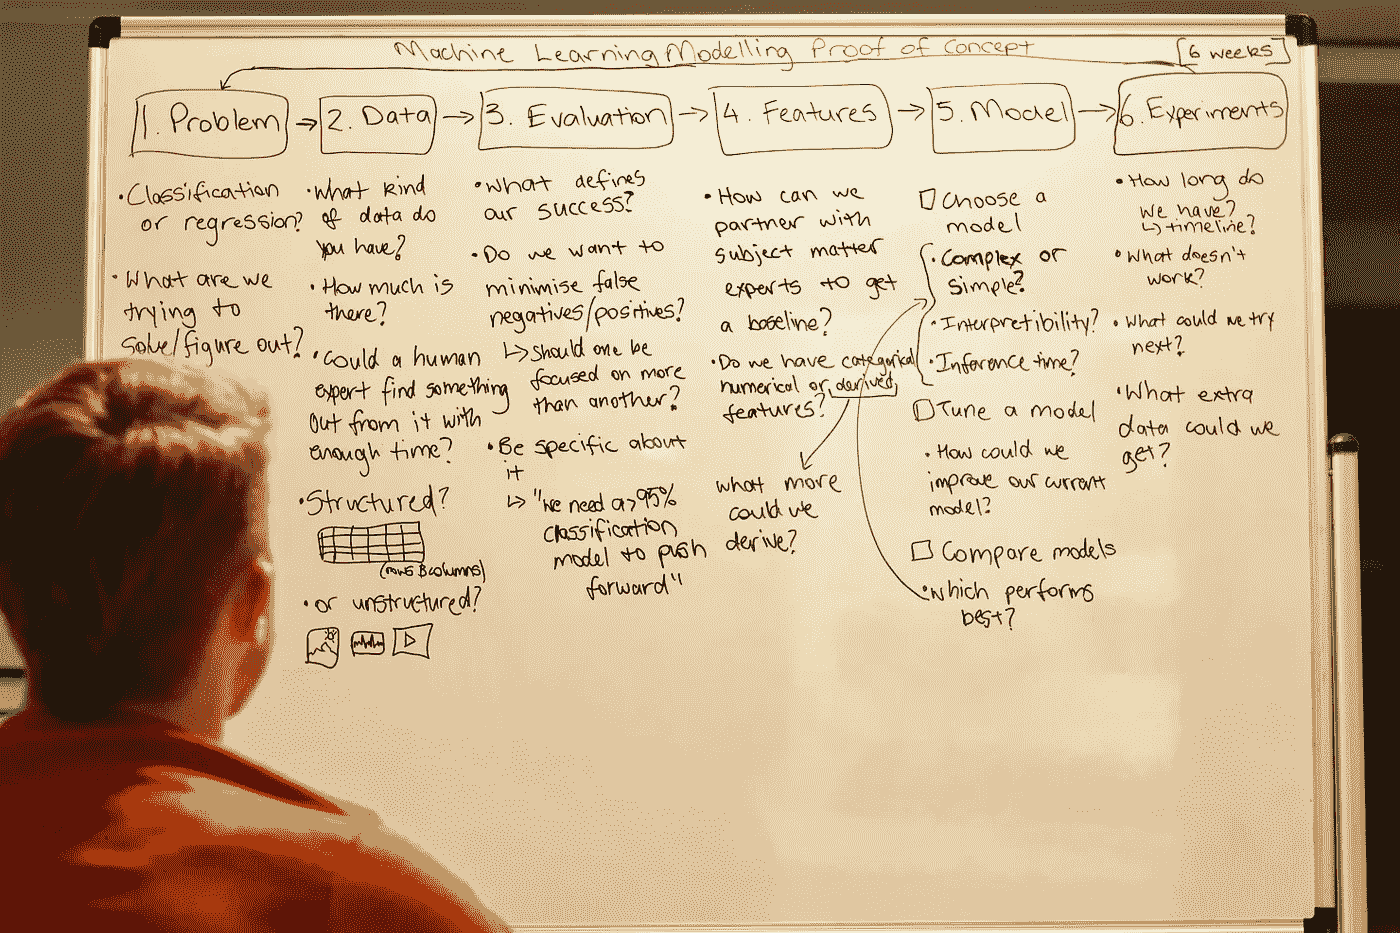 Machine Learning Modelling Proof of Concept
[6 weeks]
1. Problem
2. Data
3. Evaluation
4. Features
5. Model
6. Experiments
• Classification
or regression?
• What are we
trying to
solve/figure out?
• What kind
of data do
you have?
• How much is
there?
• Could a human
expert find something
out from it with
enough time?
• Structured?
(rows & columns)
• or unstructured?
• What defines
our success?
• Do we want to
minimise false
negatives/positives?
↳ Should one be
focused on more
than another?
• Be specific about
it
↳ "We need a >95%
classification
model to push
forward"
• How can we
partner with
subject matter
experts to get
a baseline?
• Do we have categorical
numerical or derived
features?
what more
could we
derive?
☐ Choose a
model
• Complex or
Simple?
• Interpretibility?
• Inference time?
☐ Tune a model
• How could we
improve our current
model?
☐ Compare models
• Which performs
best?
• How long do
we have?
↳ timeline?
• What doesn't
work?
• What could we try
next?
• What extra
data could we
get?